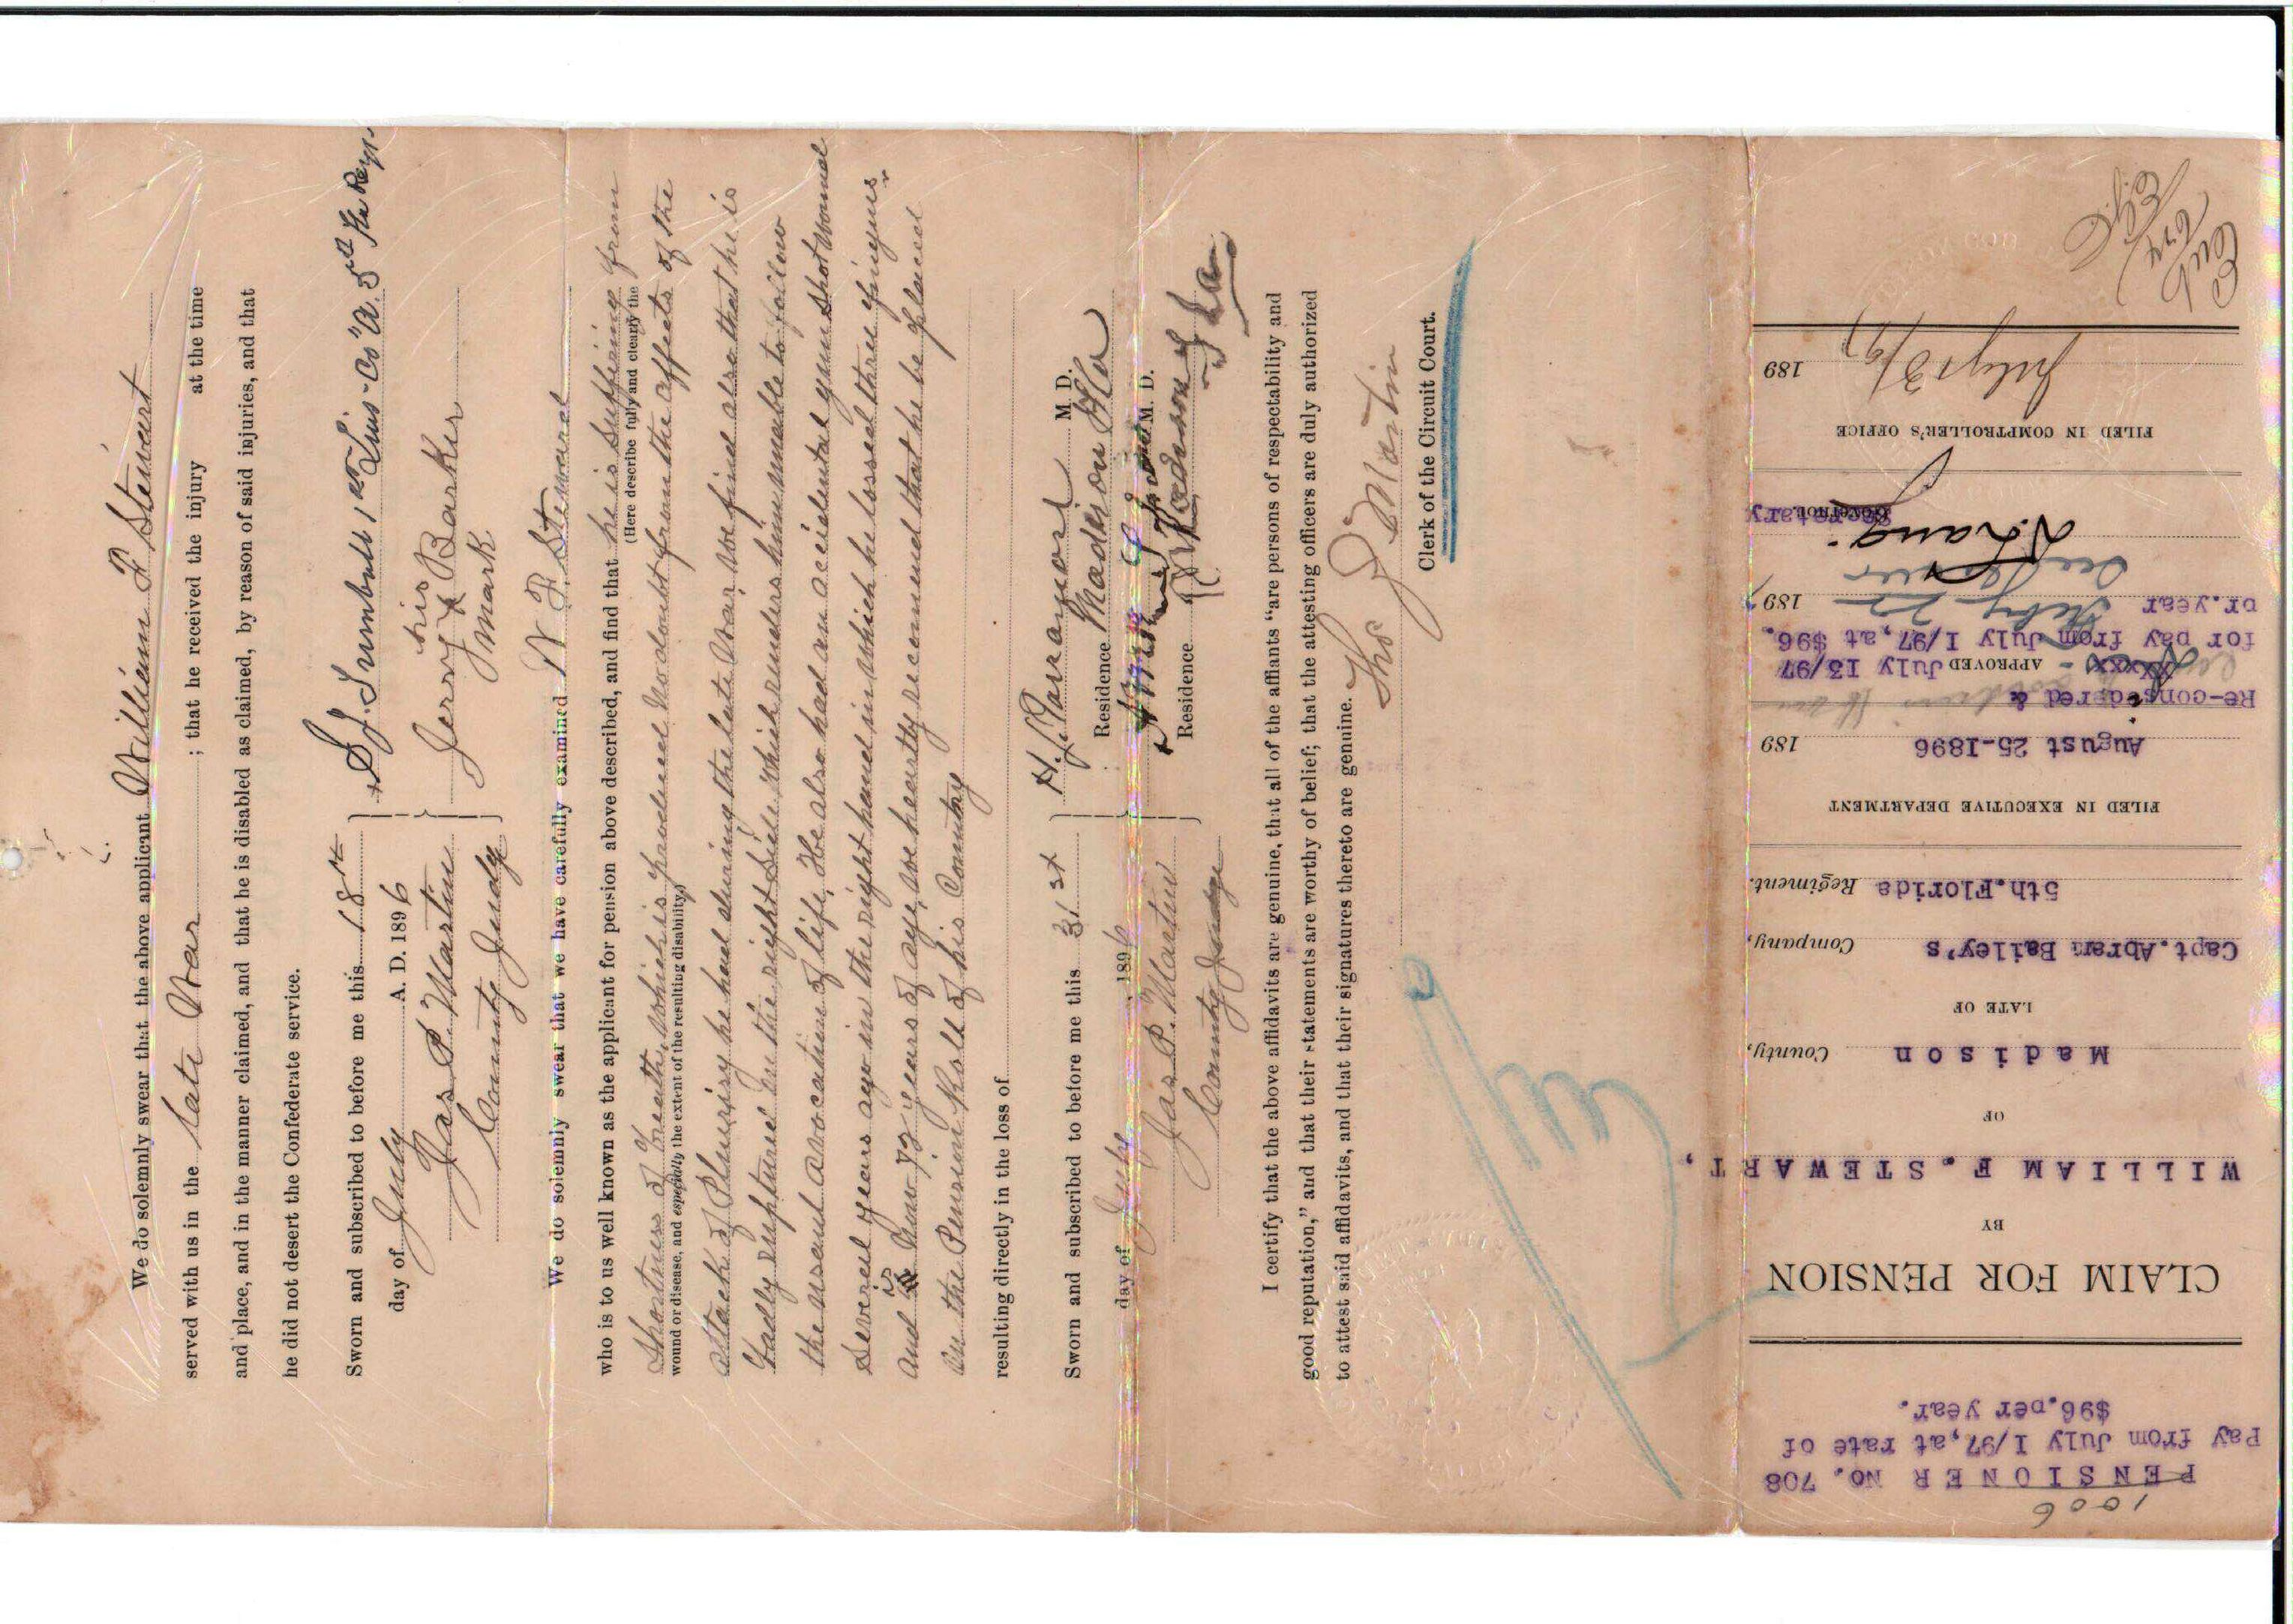 We do solemnly swear that the above applicant William F Stewart
served with us in the late War ; that he received the injury at the time
and place, and in the manner claimed, and that he is disabled as claimed, by reason of said injuries, and that
he did not desert the Confederate service.
Sworn and subscribed to before me this 18th
day of July A. D. 1896
Jas P. Martin
County Judge
Co "A" 5th Fla Regt
his
Jerry X Barker
mark
We do solemnly swear that we have carefully examined W F. Steward
who is to us well known as the applicant for pension above described, and find that he is suffering from
(Here describe fully and clearly the
shortness of breath, which is produced no doubt from the affects of the
wound or disease, and especially the extent of the resulting disability)
attack of Plurisy he had during the late War we find also that he is
badly ruptured on the right side which renders him unable to follow
the usual avocation of life, He also had an accidental gun shot wound
several years ago in the right hand in which he lossed three fingers.
and is now 72 years of age, we heartly recomend that he be placed
on the Pension Rolls of his Country
resulting directly in the loss of
Sworn and subscribed to before me this 31st
day of July 1896
Jas P. Martin
County Judge
M. D.
Residence Madison Fla
M. D.
Residence Madison Fla
I certify that the above affidavits are genuine, that all of the affiants "are persons of respectability and
good reputation," and that their statements are worthy of belief; that the attesting officers are duly authorized
to attest said affidavits, and that their signatures thereto are genuine.
Martin
Clerk of the Circuit Court.
1006
PENSIONER No. 708
Pay from July 1/97, at rate of
$96. per year.
CLAIM FOR PENSION
BY
WILLIAM F. STEWART,
OF
Madison County,
LATE OF
Capt. Abram Bailey's Company,
5th. Florida Regiment.
FILED IN EXECUTIVE DEPARTMENT
August 25-1896 189
Re-considered &
xxxxx APPROVED July 13/97
for pay from July 1/97, at $96.
pr. year 189
Secretary
FILED IN COMPTROLLER'S OFFICE
July 13/97 189